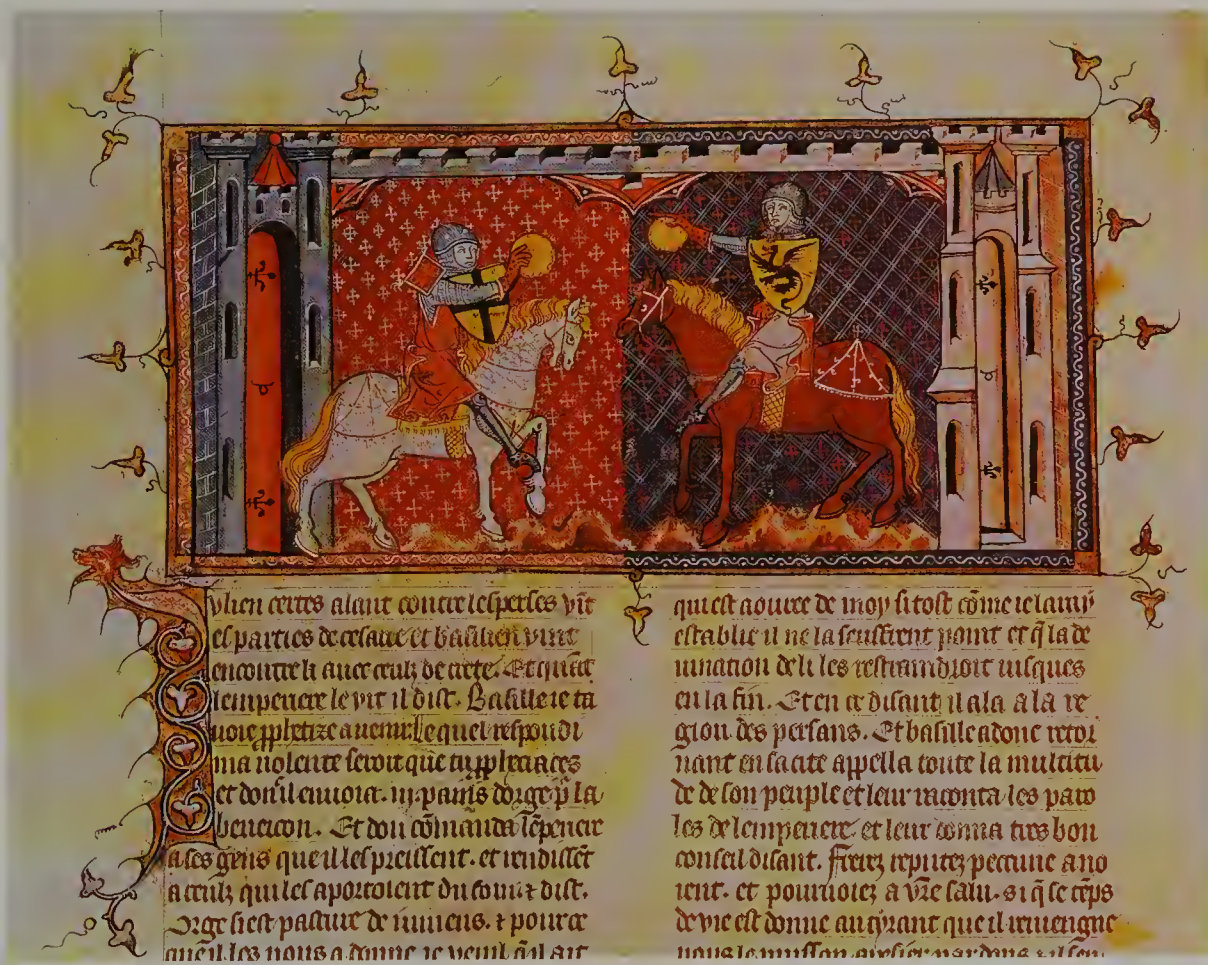 ulien certes alant contre lesperses vīt
es parties de cesaire et basilien vint
encontre li auec ceulz de crete. Et quāt
lemperiere le vit il dist. Basille ie ta
uoie ꝓphetize a uenir. Lequel respondi
ma uolente seroit que tu ꝓphetiaces
et don il enuoia .iij. pains dorge ꝑ la
beneicon. Et dou cōmanda lēperier
a ses gens que il les preissent. et rendissēt
a ceulz qui les aportoient du foin ⁊ dist.
Orge si est pasture de iumens. ⁊ pour ce
que il les nous a donne ie veuil q̄l ait
qui est aouree de moy si tost cōme ie lamy
establie il ne la seuffrent point et q̄ la de
uination de li les restraindroit iusques
en la fin. Et en ce disant il ala a la re
gion des persans. Et basille adonc retor
nant en sa cite appella toute la multitu
de de son peuple et leur raconta les paro
les de lemperiere et leur donna tres bon
conseil disant. Freres reputez peccune a no
ient. et pouruoiez a vr̄e salu. si q̄ se tēps
de vie est donne au tyrant que il reuiengne